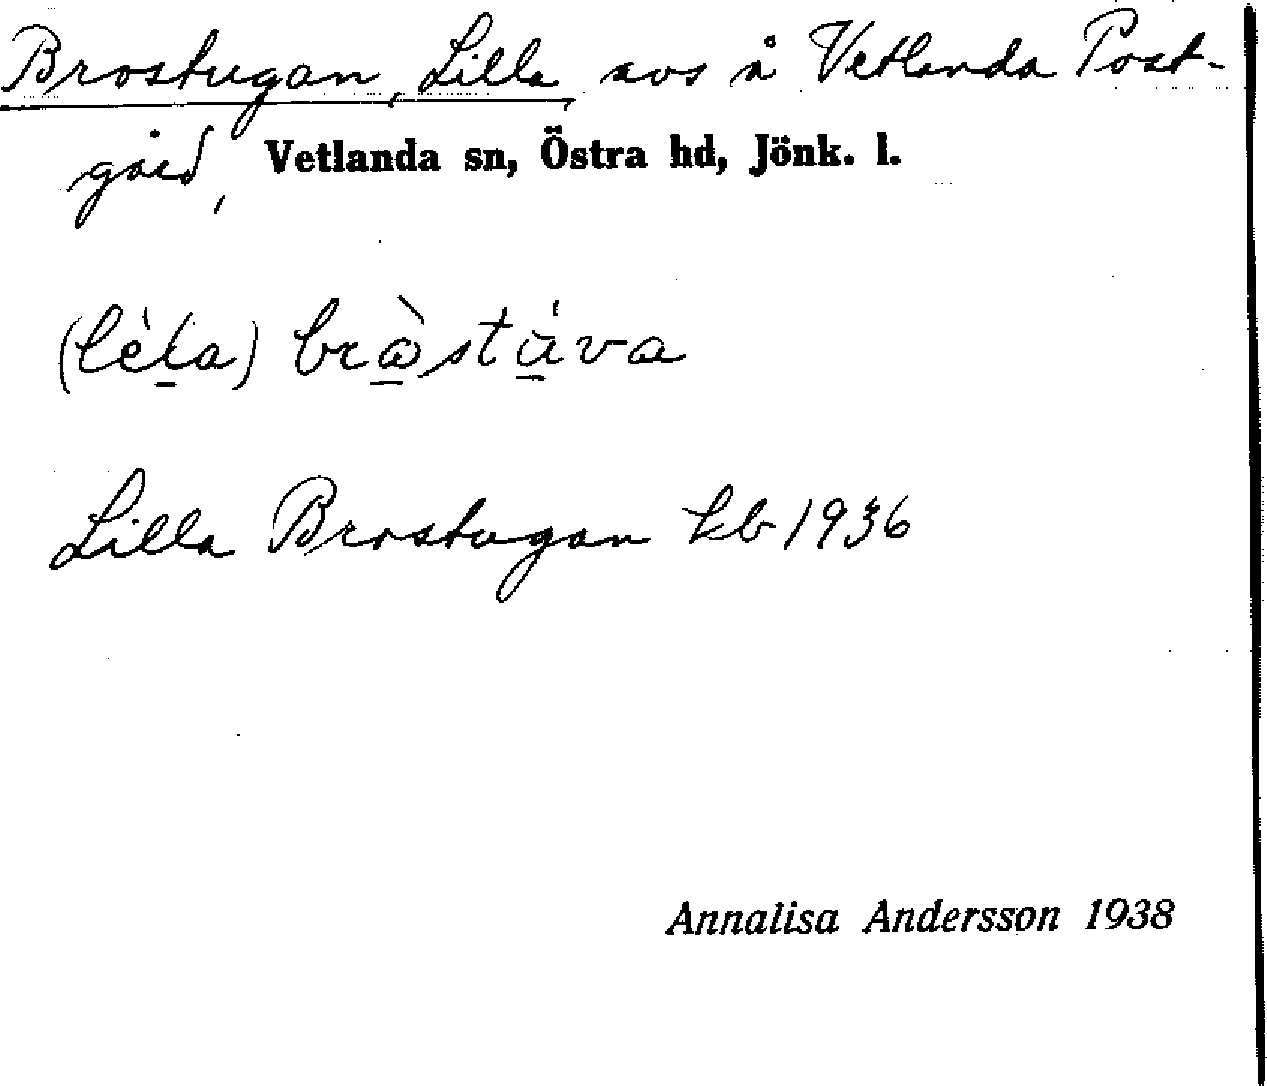 Brostugan, Lilla, avs å Vetlanda Post-
gård, Vetlanda sn, Östra hd, Jönk. l.
Lilla Brostugan kb 1936
Annalisa Andersson 1938